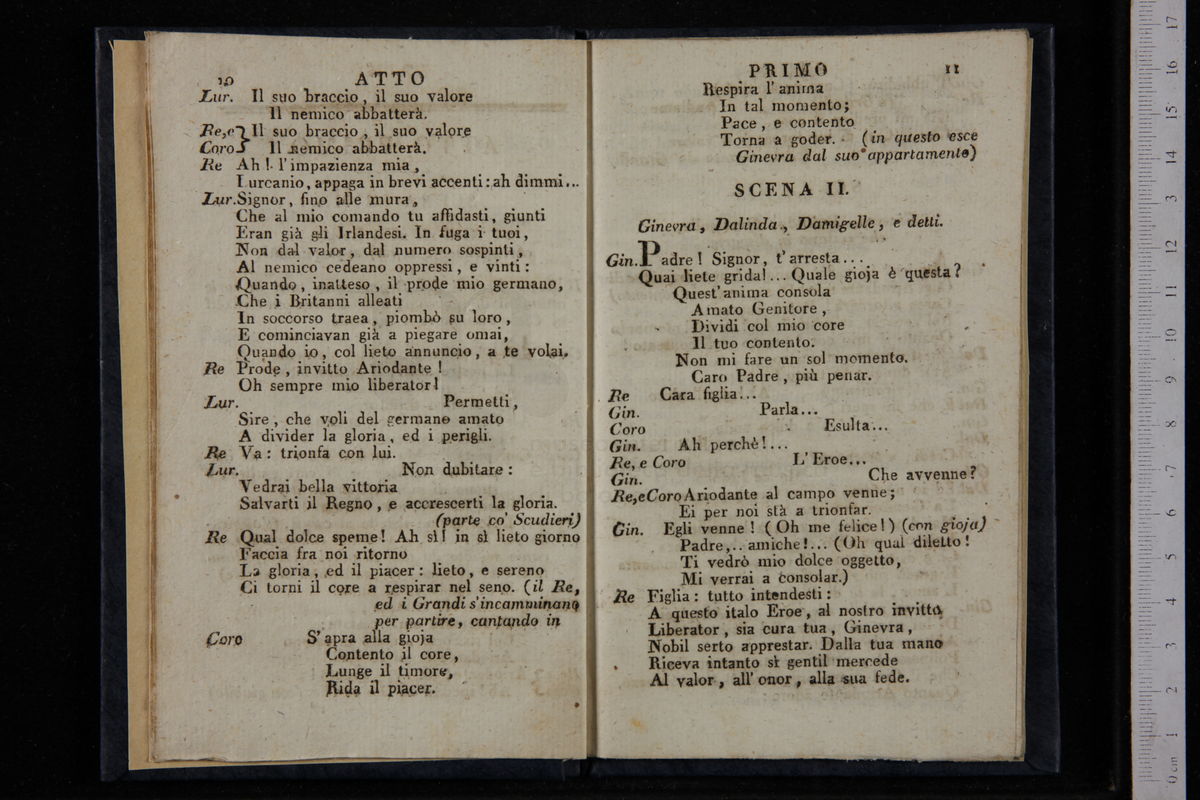 10 ATTO
Lur. Il suo braccio, il suo valore
Il nemico abbatterà.
Re, e } Il suo braccio, il suo valore
Coro } Il nemico abbatterà.
Re Ah! l'impazienza mia,
Lurcanio, appaga in brevi accenti: ah dimmi...
Lur. Signor, fino alle mura,
Che al mio comando tu affidasti, giunti
Eran già gli Irlandesi. In fuga i tuoi,
Non dal valor, dal numero sospinti,
Al nemico cedeano oppressi, e vinti:
Quando, inatteso, il prode mio germano,
Che i Britanni alleati
In soccorso traea, piombò su loro,
E cominciavan già a piegare omai,
Quando io, col lieto annuncio, a te volai.
Re Prode, invitto Ariodante!
Oh sempre mio liberator!
Lur. Permetti,
Sire, che voli del germano amato
A divider la gloria, ed i perigli.
Re Va: trionfa con lui.
Lur. Non dubitare:
Vedrai bella vittoria
Salvarti il Regno, e accrescerti la gloria.
(parte co' Scudieri)
Re Qual dolce speme! Ah sì! in sì lieto giorno
Faccia fra noi ritorno
La gloria, ed il piacer: lieto, e sereno
Ci torni il core a respirar nel seno. (il Re,
ed i Grandi s'incamminano
per partire, cantando in
Coro S'apra alla gioja
Contento il core,
Lunge il timore,
Rida il piacer.
PRIMO 11
Respira l'anima
In tal momento;
Pace, e contento
Torna a goder. (in questo esce
Ginevra dal suo appartamento)
SCENA II.
Ginevra, Dalinda, Damigelle, e detti.
Gin. Padre! Signor, t'arresta...
Quai liete grida!... Quale gioja è questa?
Quest'anima consola
Amato Genitore,
Dividi col mio core
Il tuo contento.
Non mi fare un sol momento.
Caro Padre, più penar.
Re Cara figlia...
Gin. Parla...
Coro Esulta...
Gin. Ah perchè!...
Re, e Coro L'Eroe...
Gin. Che avvenne?
Re, e Coro Ariodante al campo venne;
Ei per noi stà a trionfar.
Gin. Egli venne! (Oh me felice!) (con gioja)
Padre,.. amiche!... (Oh qual diletto!
Ti vedrò mio dolce oggetto,
Mi verrai a consolar.)
Re Figlia: tutto intendesti:
A questo italo Eroe, al nostro invitto
Liberator, sia cura tua, Ginevra,
Nobil serto apprestar. Dalla tua mano
Riceva intanto sì gentil mercede
Al valor, all'onor, alla sua fede.
17
16
15
14
13
12
11
10
9
8
7
6
5
4
3
2
1
0 cm